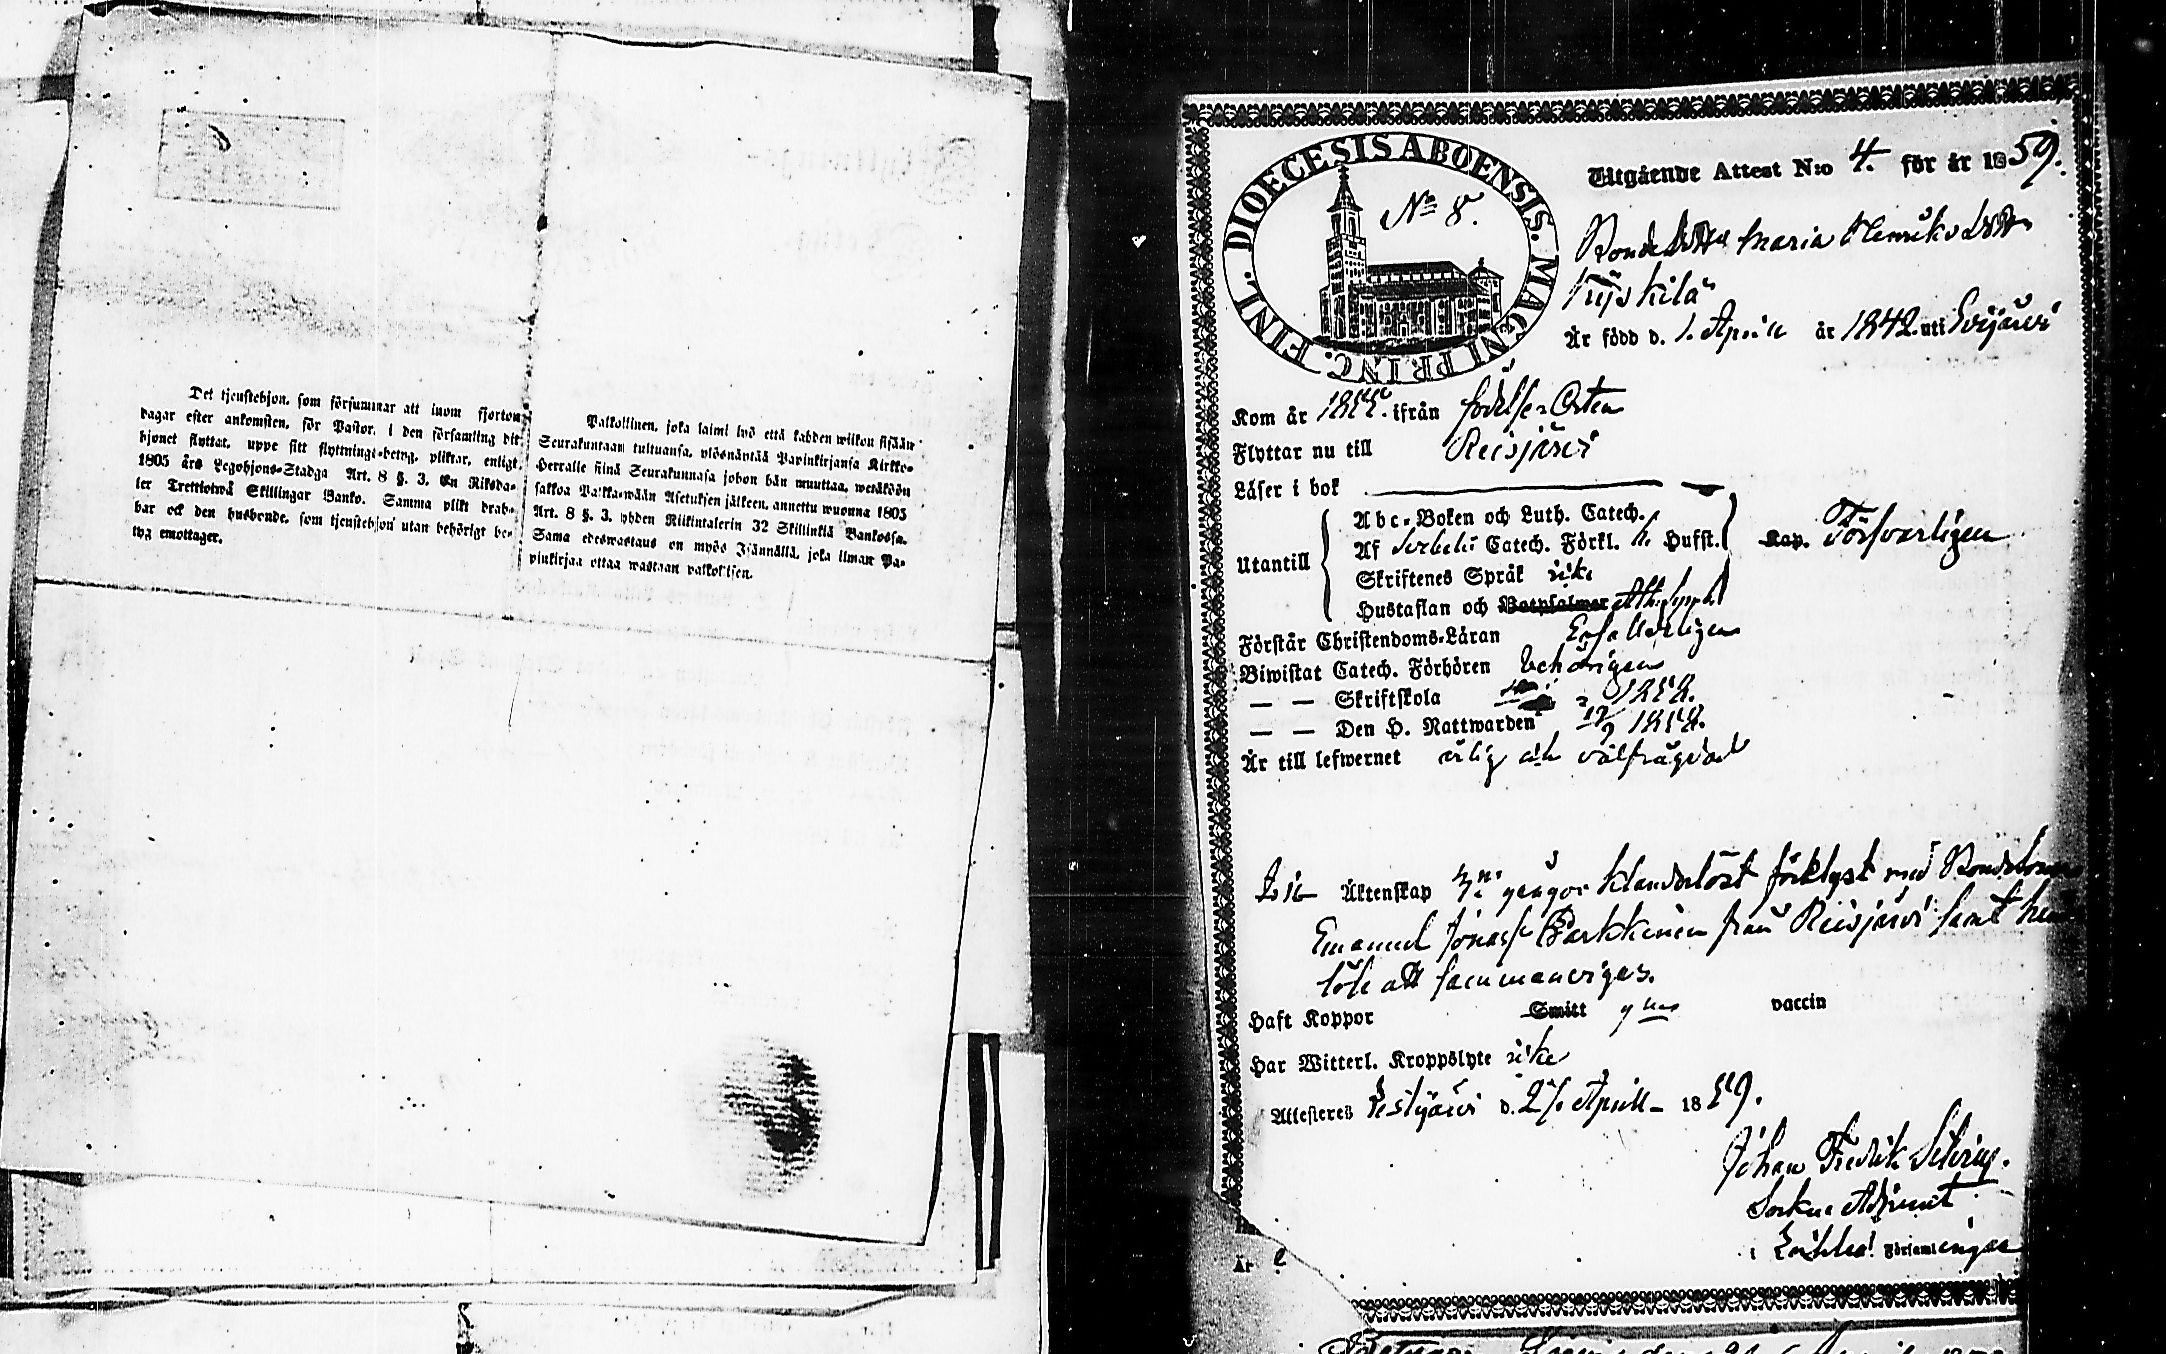 Det tjenstehjon, som försummar att inom fjorton
dagar efter ankomsten, för Pastor, i den församling dit
hjonet flyttat, uppe sitt flyttnings-betyg, pliktar, enligt
1805 års Legohjons-Stadga Art. 8 §. 3. En Riksda-
ler Trettiotwå Skillingar Banko. Samma plikt drab-
bar ock den husbonde, som tjenstehjon utan behörigt be-
tyg emottager.
Palkollinen, joka laimi lyö että kahden wiikon sisään
Seurakuntaan tultuansa, ylösnäntää Papinkirjansa Kirkko-
Herralle siinä Seurakunnasa johon hän muuttaa, wetäköön
sakkoa Palkka-wään Asetuksen jälkeen, annettu wuonna 1805
Art. 8 §. 3. yhden Riikintalerin 32 Skillinkiä Bankossa.
Sama edeswastaus on myös Isännällä, joka ilman Pa-
pinkirjaa ottaa wastaan palkollisen.
DIOECESIS ABOENSIS. MAGNI PRINC. FINL.
No 8.
Utgående Attest N:o 4. för år 1859.
Bondedottren Maria Henriksdotter
Är född d. 1. April år 1842. uti Evijärvi
Kom år 1855. ifrån födelse Orten
Flyttar nu till Reisjärvi
Läser i bok
Abc-Boken och Luth. Catech.
Utantill Af Svebelii Catech. Förkl. Husst. Kap. Försvarligen
Skriftenes Språk icke
Hustaflan och Botpsalmer Ath. Symb.
Förstår Christendoms-Läran Enfalldeligen
Biwistat Catech. Förhören behörigen
— — Skriftskola 1858.
— — Den H. Nattwarden 1858.
Är till lefwernet ärlig och välfrägdad
Till Äktenskap 3ne gångor klanderlöst förklyst med Bondesonen
Emanuel Jonass. Parkkinen från Reisjärvi samt
att sammanviges.
Haft Koppor Smitt vaccin
Har Witterl. Kroppslyte icke
Attesteras Lestijärvi d. 21. April 1859.
Johan Fredrik
Sockne Adjunct
i Församlingar
Är